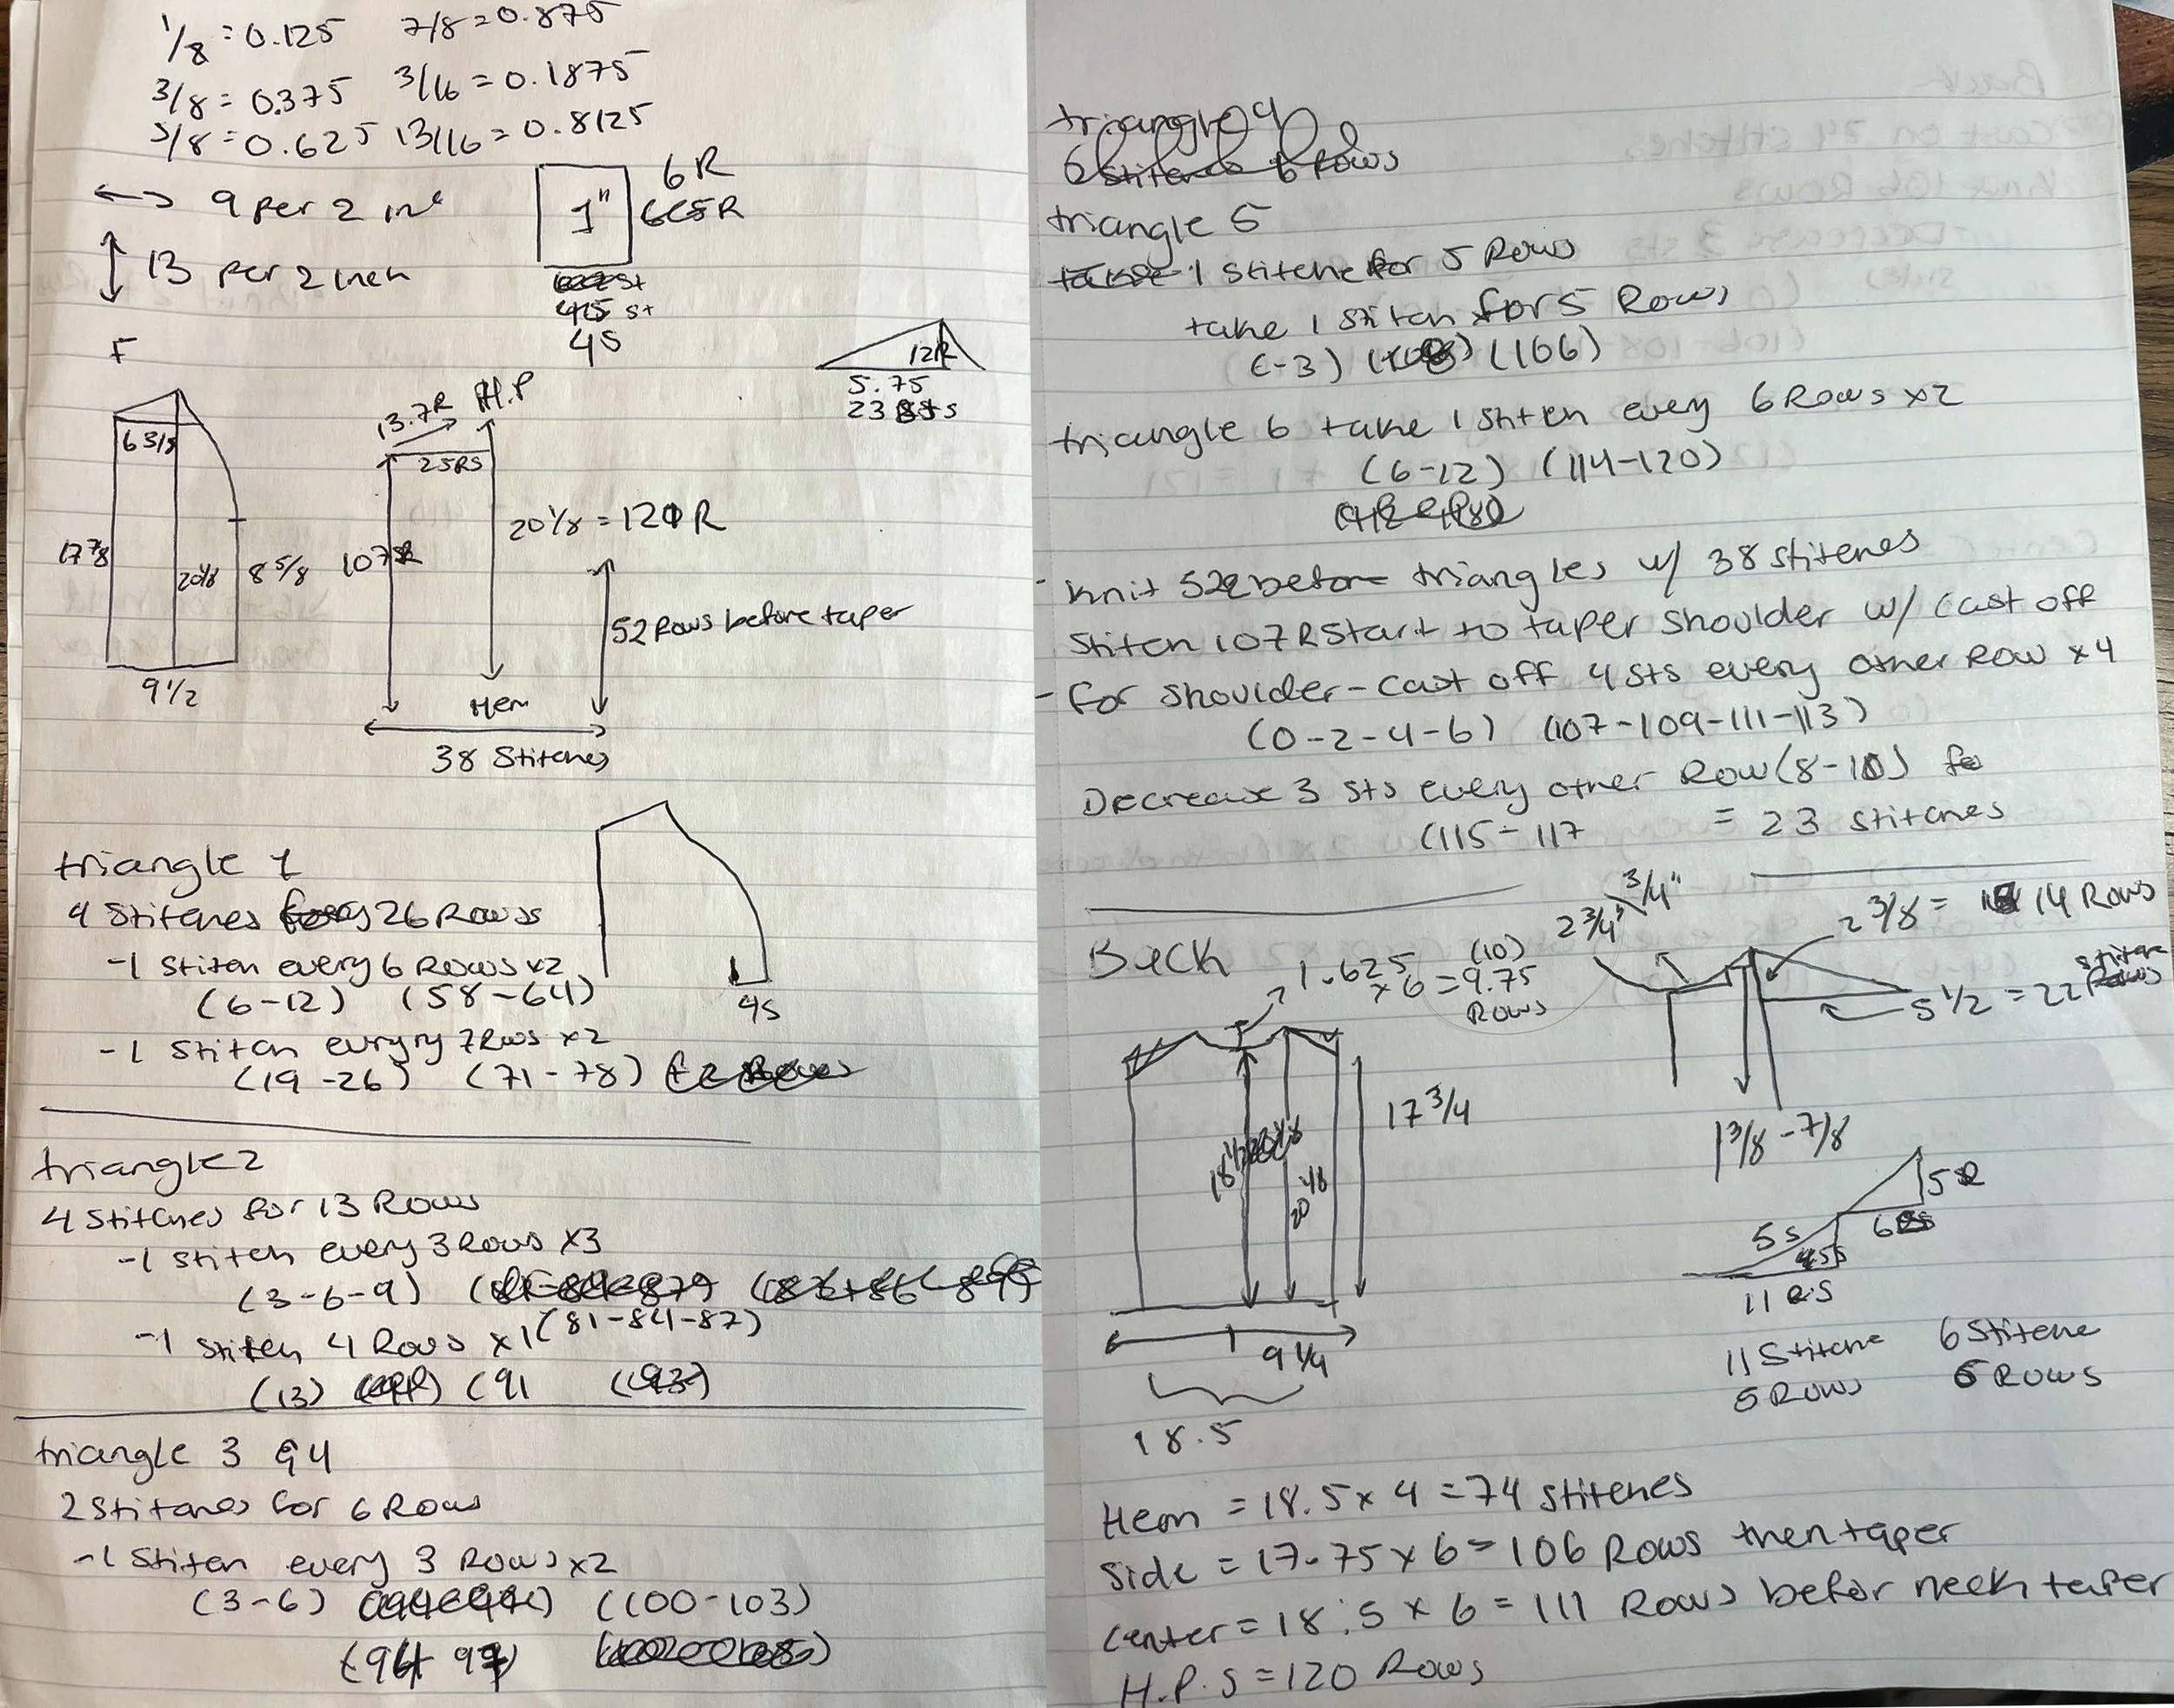 1/8 = 0.125 7/8 = 0.875
3/8 = 0.375 3/16 = 0.1875
5/8 = 0.625 13/16 = 0.8125
↔ 9 per 2 in
↕ 13 per 2 inch
1"
6R
6.5R
4.5 st
4S
F
12R
5.75
23 sts
6 3/8
17 7/8
20 1/8
8 5/8
9 1/2
13.7R
H.P
25 S
107R
20 1/8 = 120 R
52 Rows before taper
Hem
38 Stitches
triangle 1
4 Stitches 26 Rows
-1 Stitch every 6 Rows x2
(6-12) (58-64)
-1 Stitch evryry 7 Rows x2
(19-26) (71-78)
4S
triangle 2
4 Stitches for 13 Rows
-1 stitch every 3 Rows x3
(3-6-9)
(81-84-87)
-1 Stitch 4 Rows x1
(13) (91
triangle 3 & 4
2 Stitches for 6 Rows
-1 Stitch every 3 Rows x2
(3-6) (100-103)
(94 97)
triangle 4
6 Stitches 6 Rows
triangle 5
take 1 Stitche for 5 Rows
take 1 Stitch for 5 Rows
(-3) (106)
triangle 6 take 1 Stitch every 6 Rows x2
(6-12) (114-120)
- Knit 52 before triangles w/ 38 stitches
Stitch 107 R Start to taper shoulder w/ cast off
- for shoulder - cast off 4 sts every other Row x4
(0-2-4-6) (107-109-111-113)
Decrease 3 sts every other Row (8-10)
(115-117 = 23 stitches
Back
1.625 (10)
x 6 = 9.75
Rows
2 3/4"
3/4"
2 3/8 = 14 Rows
5 1/2 = 22 stitch
1 3/8 - 7/8
17 3/4
18 1/2
20 1/8
9 1/4
18.5
5R
6S
5S
11 S
11 Stitche 6 Stitche
5 Rows 5 Rows
Hem = 18.5 x 4 = 74 Stitches
Side = 17.75 x 6 = 106 Rows then taper
Center = 18.5 x 6 = 111 Rows befor neck taper
H.P.S = 120 Rows